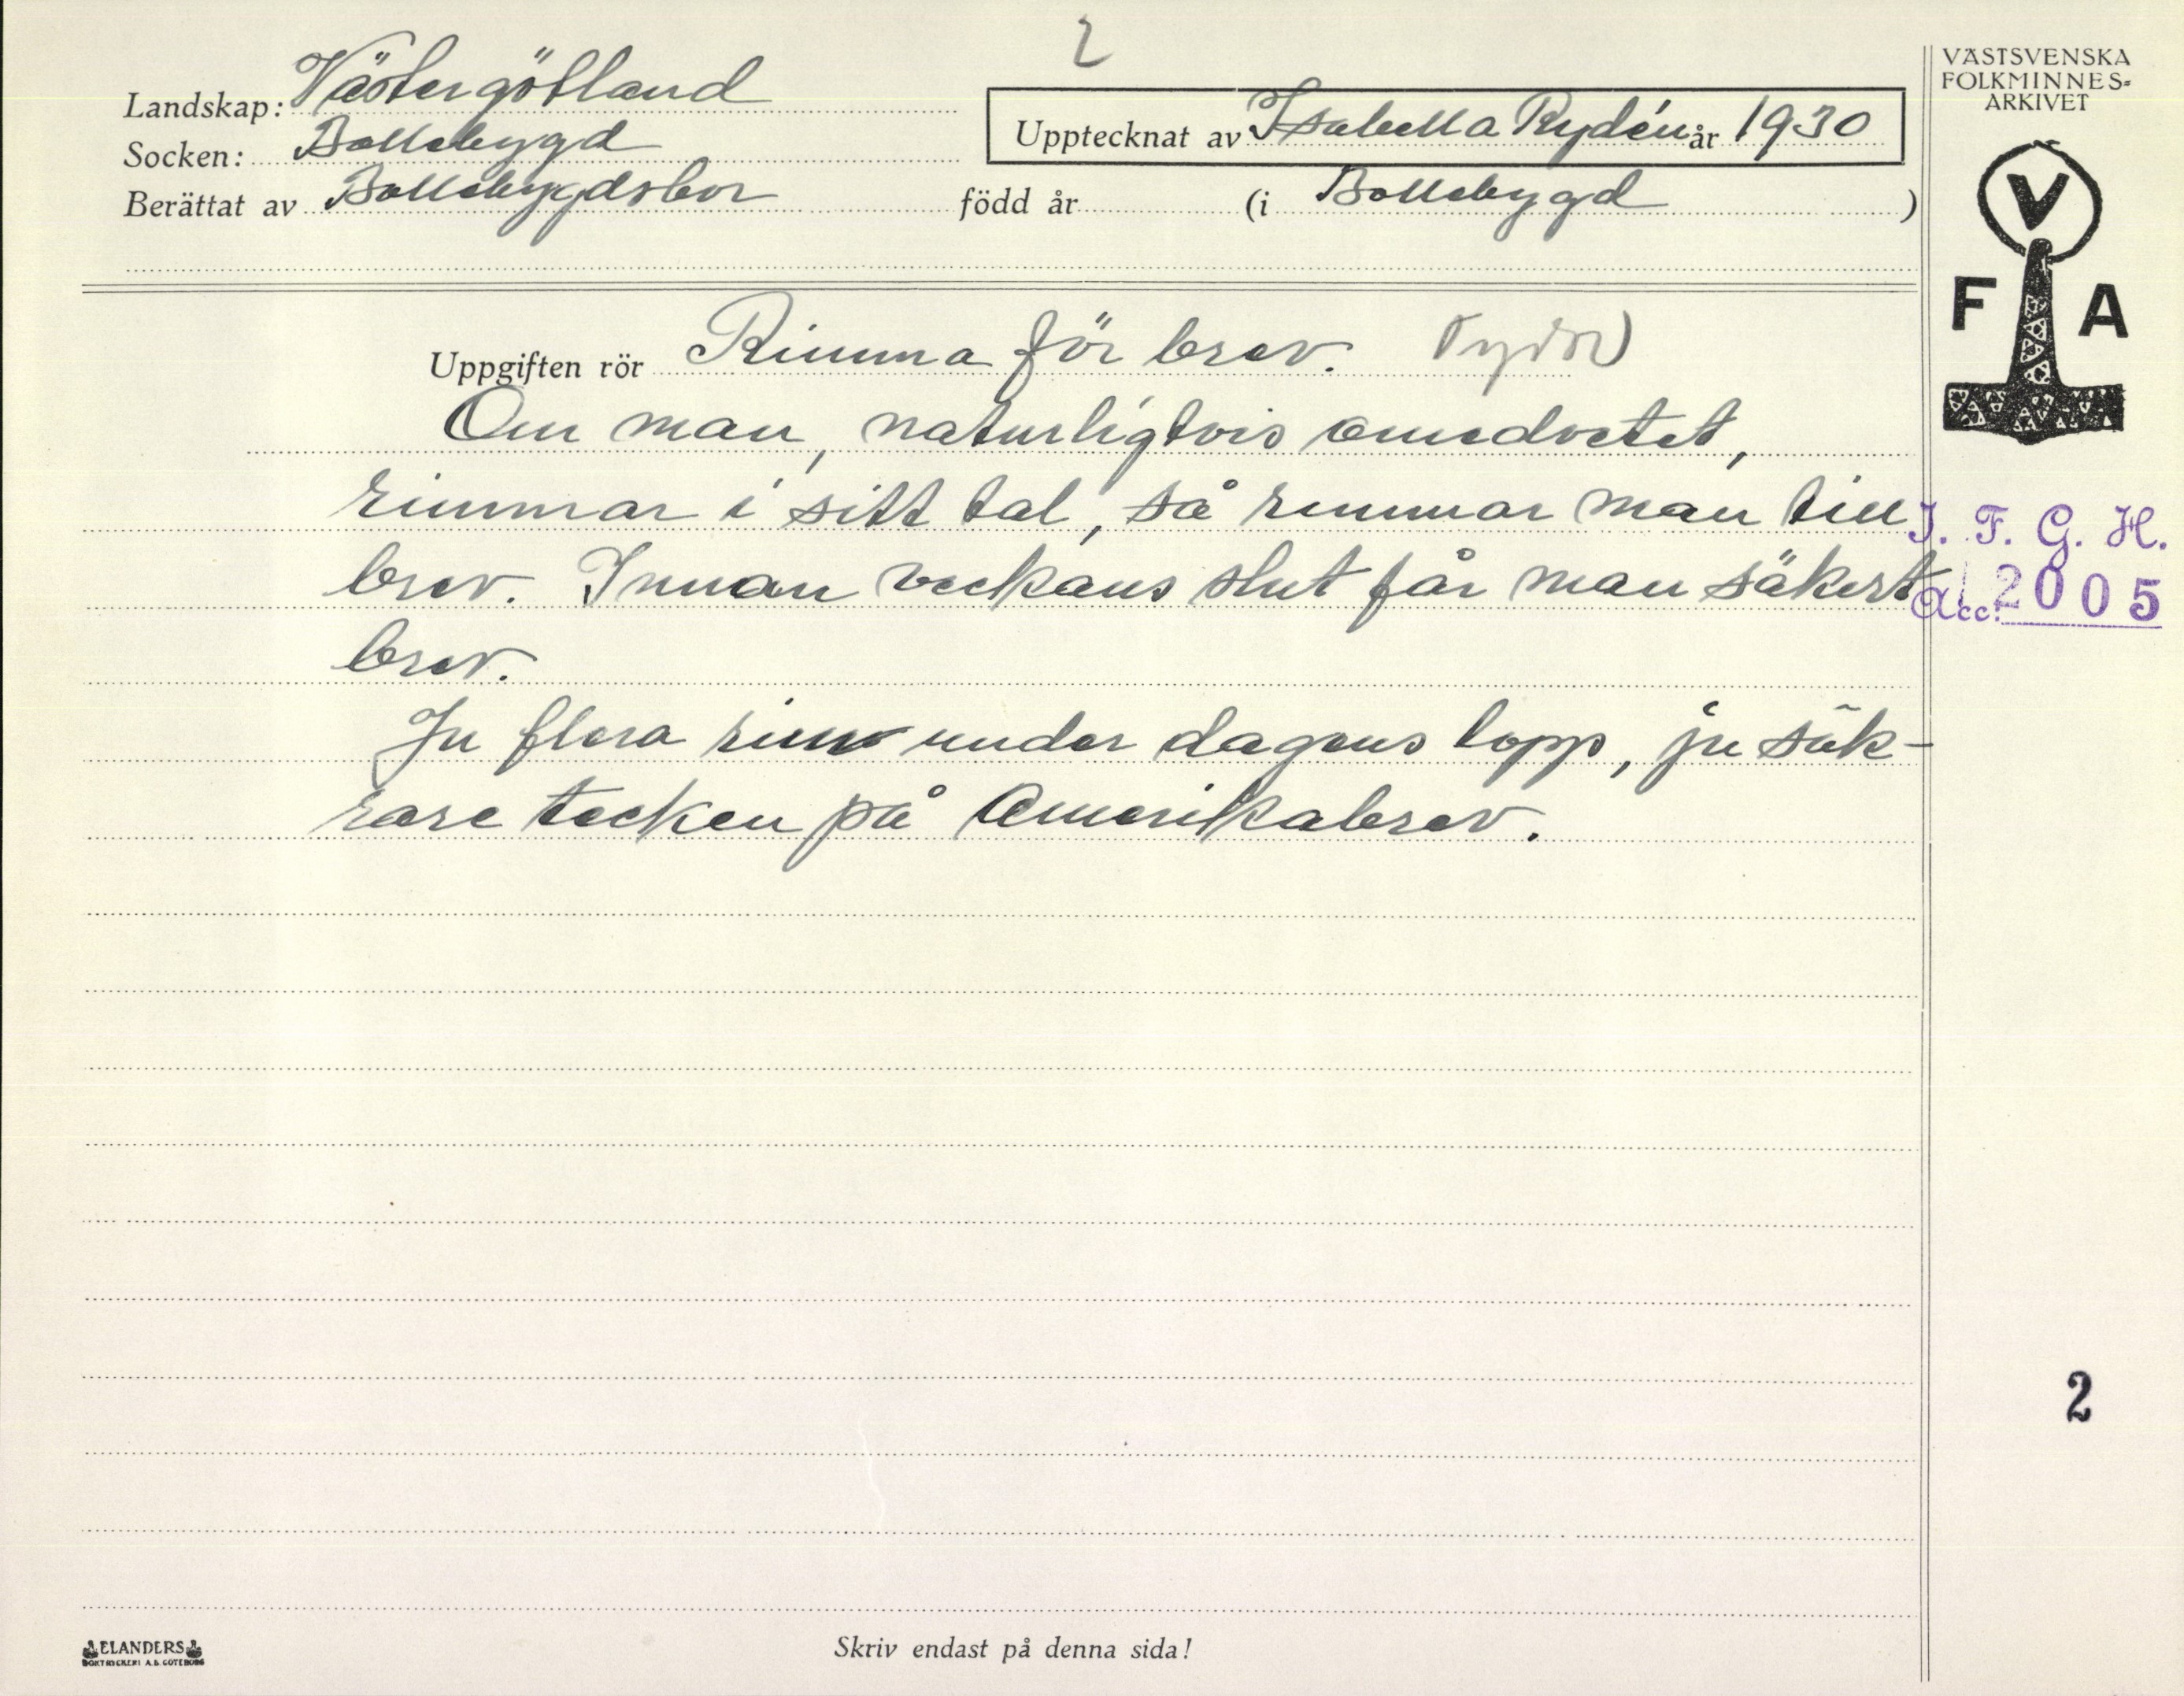 2
VÄSTSVENSKA
FOLKMINNES=
ARKIVET
Landskap: Västergötland
Upptecknat av Isabella Rydén år 1930
Socken: Bollebygd
Berättat av Bollebygdsbor född år (i Bollebygd )
V
F A
Uppgiften rör Rimma för brev.
Om man, naturligtvis omedvetet,
rimmar i sitt tal, så rimmar man till
brev. Innan veckans slut får man säkert
brev.
Ju flera rim under dagens lopp, ju säk-
rare tecken på Amerikabrev.
I. F. G. H.
Acc. 2005
2
ELANDERS
BOKTRYCKERI A.B. GÖTEBORG
Skriv endast på denna sida!